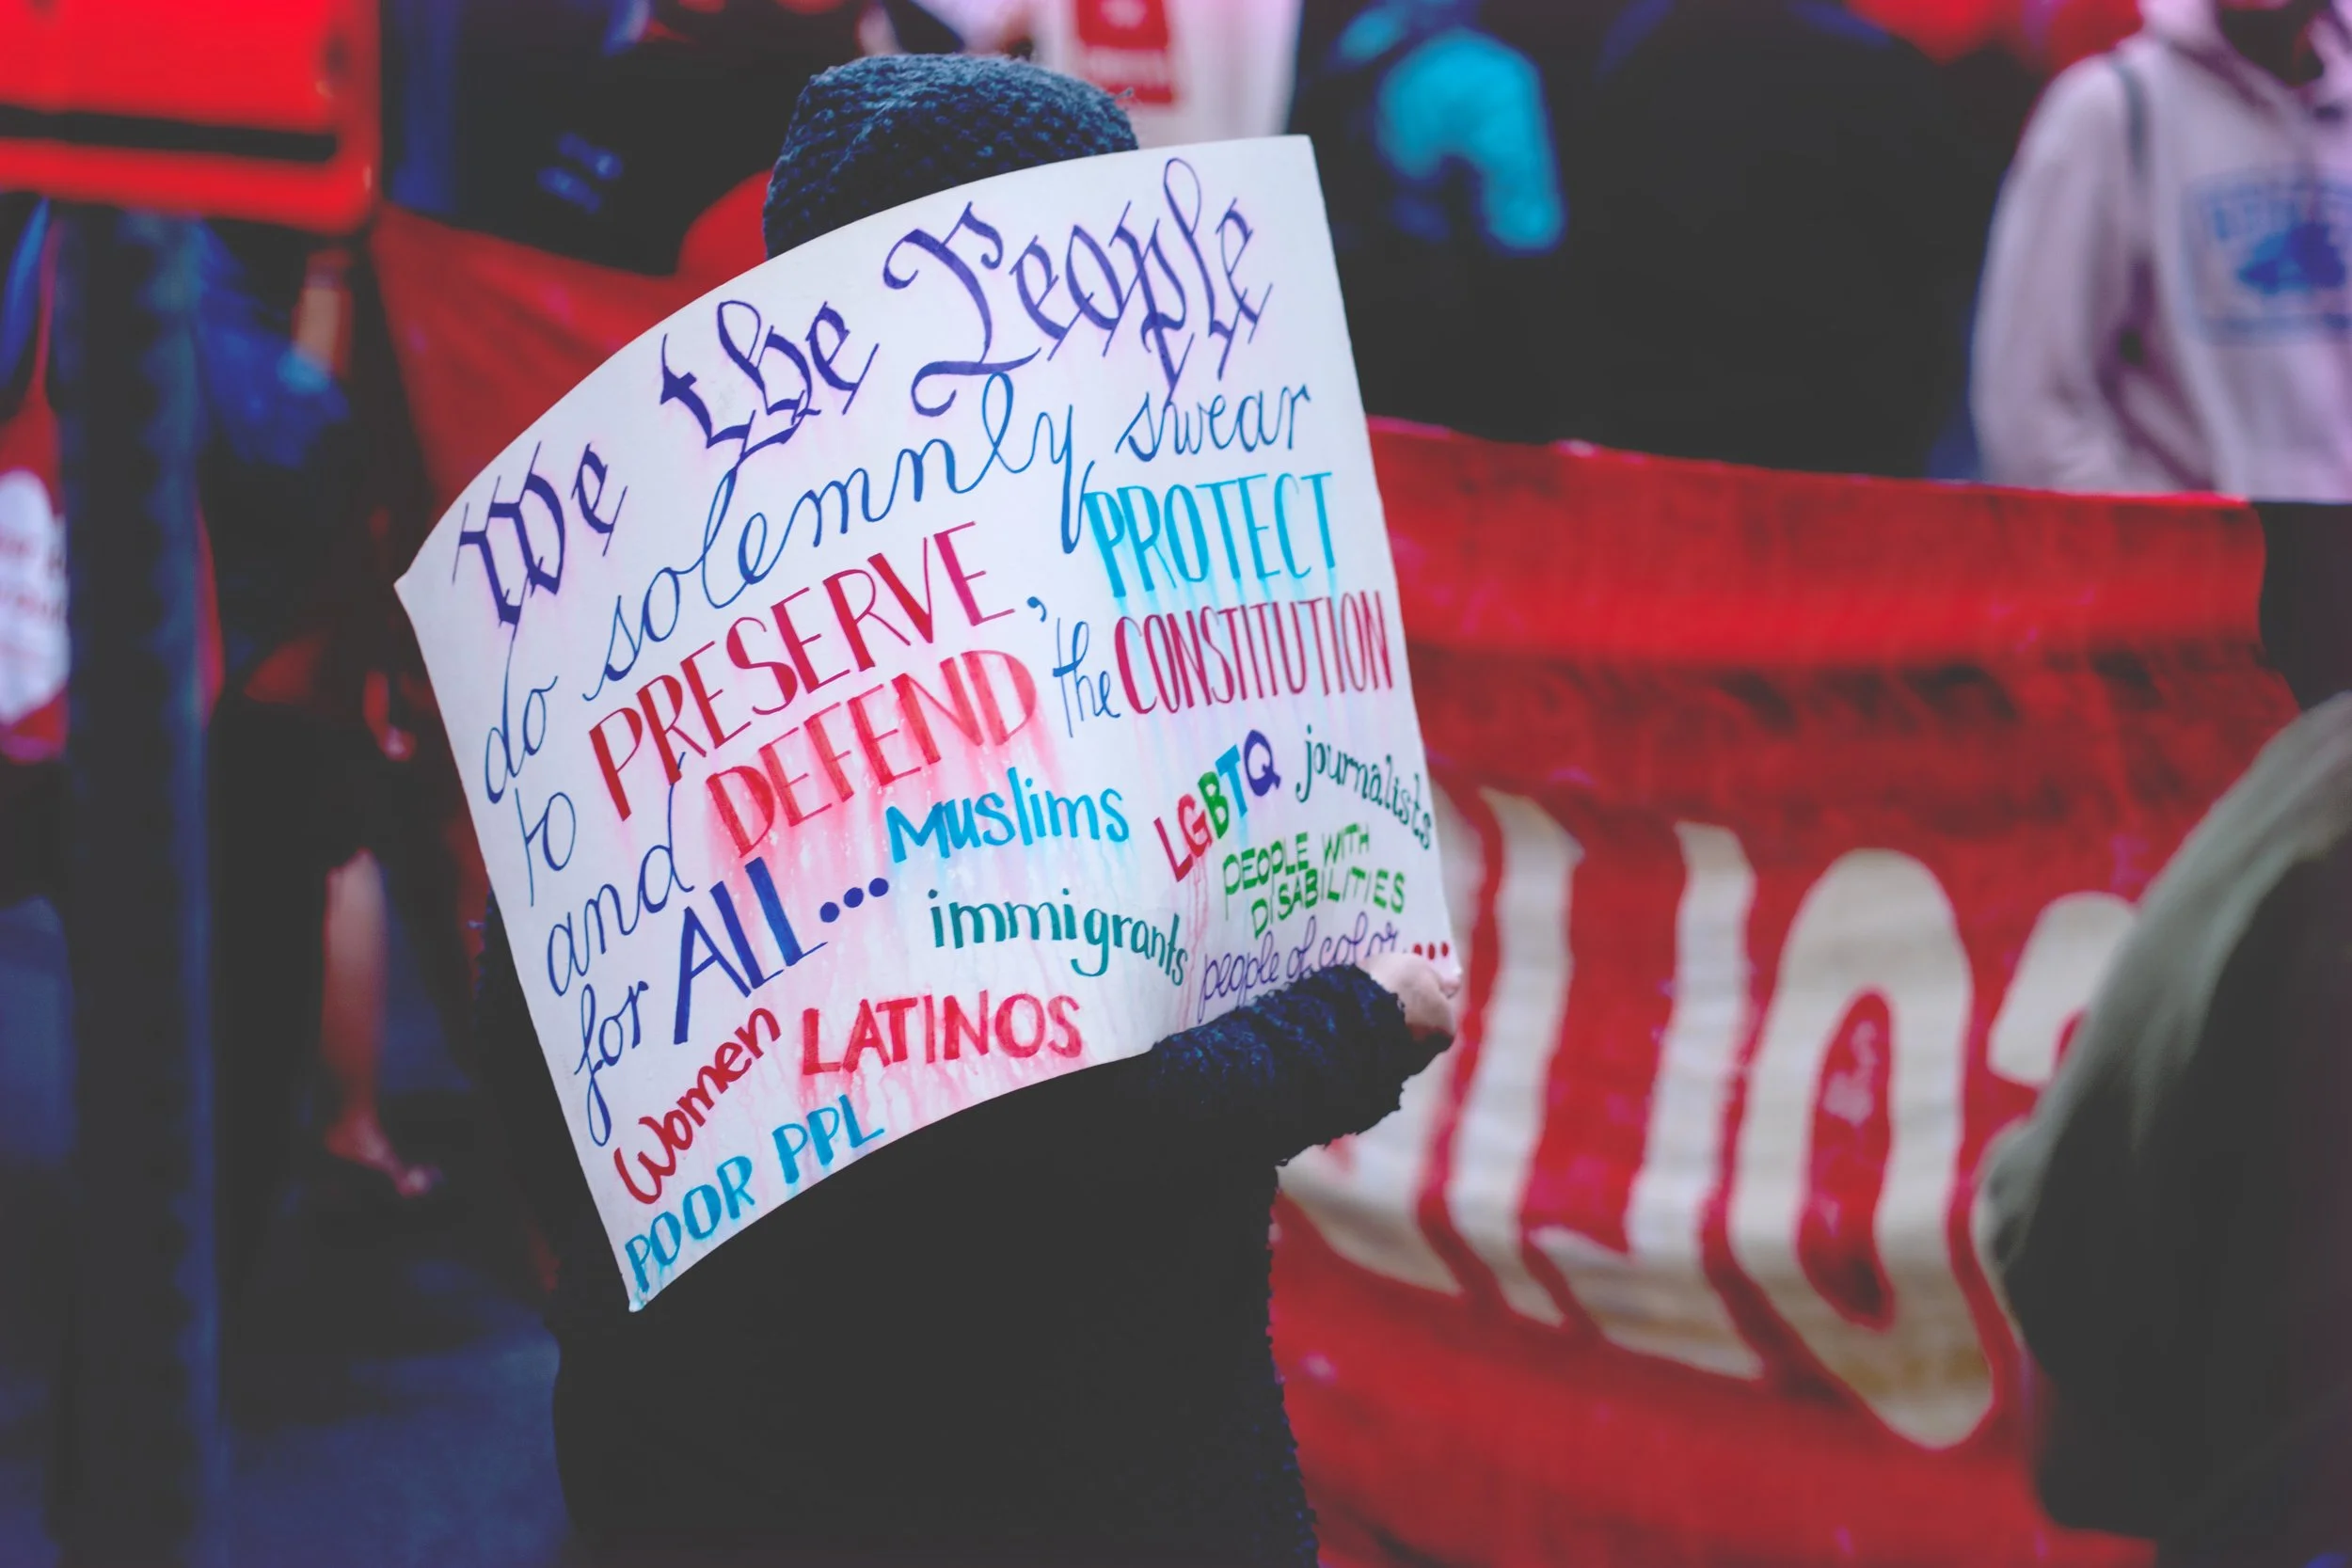 We the People
do solemnly swear
to PRESERVE, PROTECT
and DEFEND the CONSTITUTION
for ALL... Muslims LGBTQ journalists
immigrants PEOPLE WITH
DISABILITIES
people of color....
Women LATINOS
POOR PPL